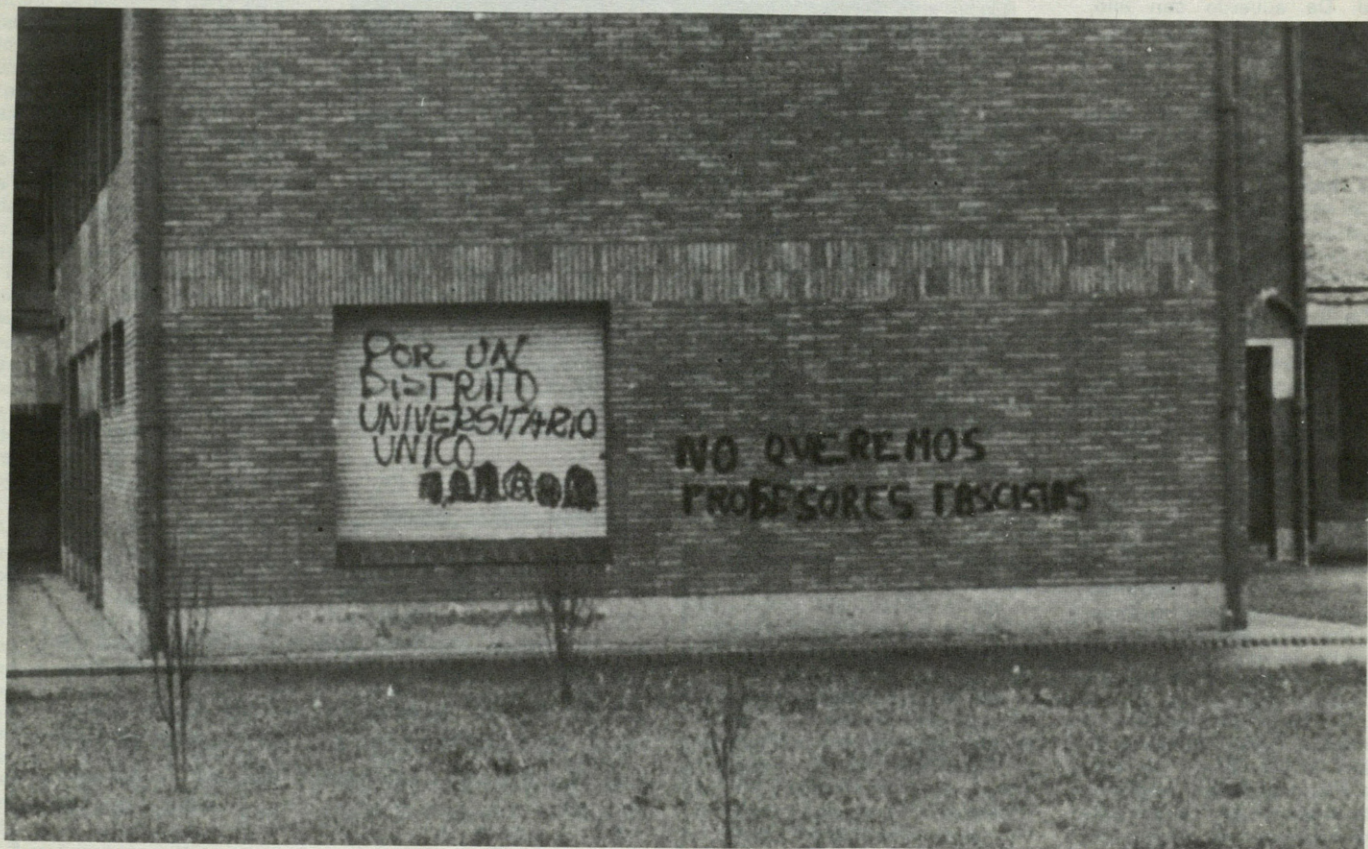 POR UN
DISTRITO
UNIVERSITARIO
UNICO
NO QUEREMOS
PROFESORES FASCISTAS